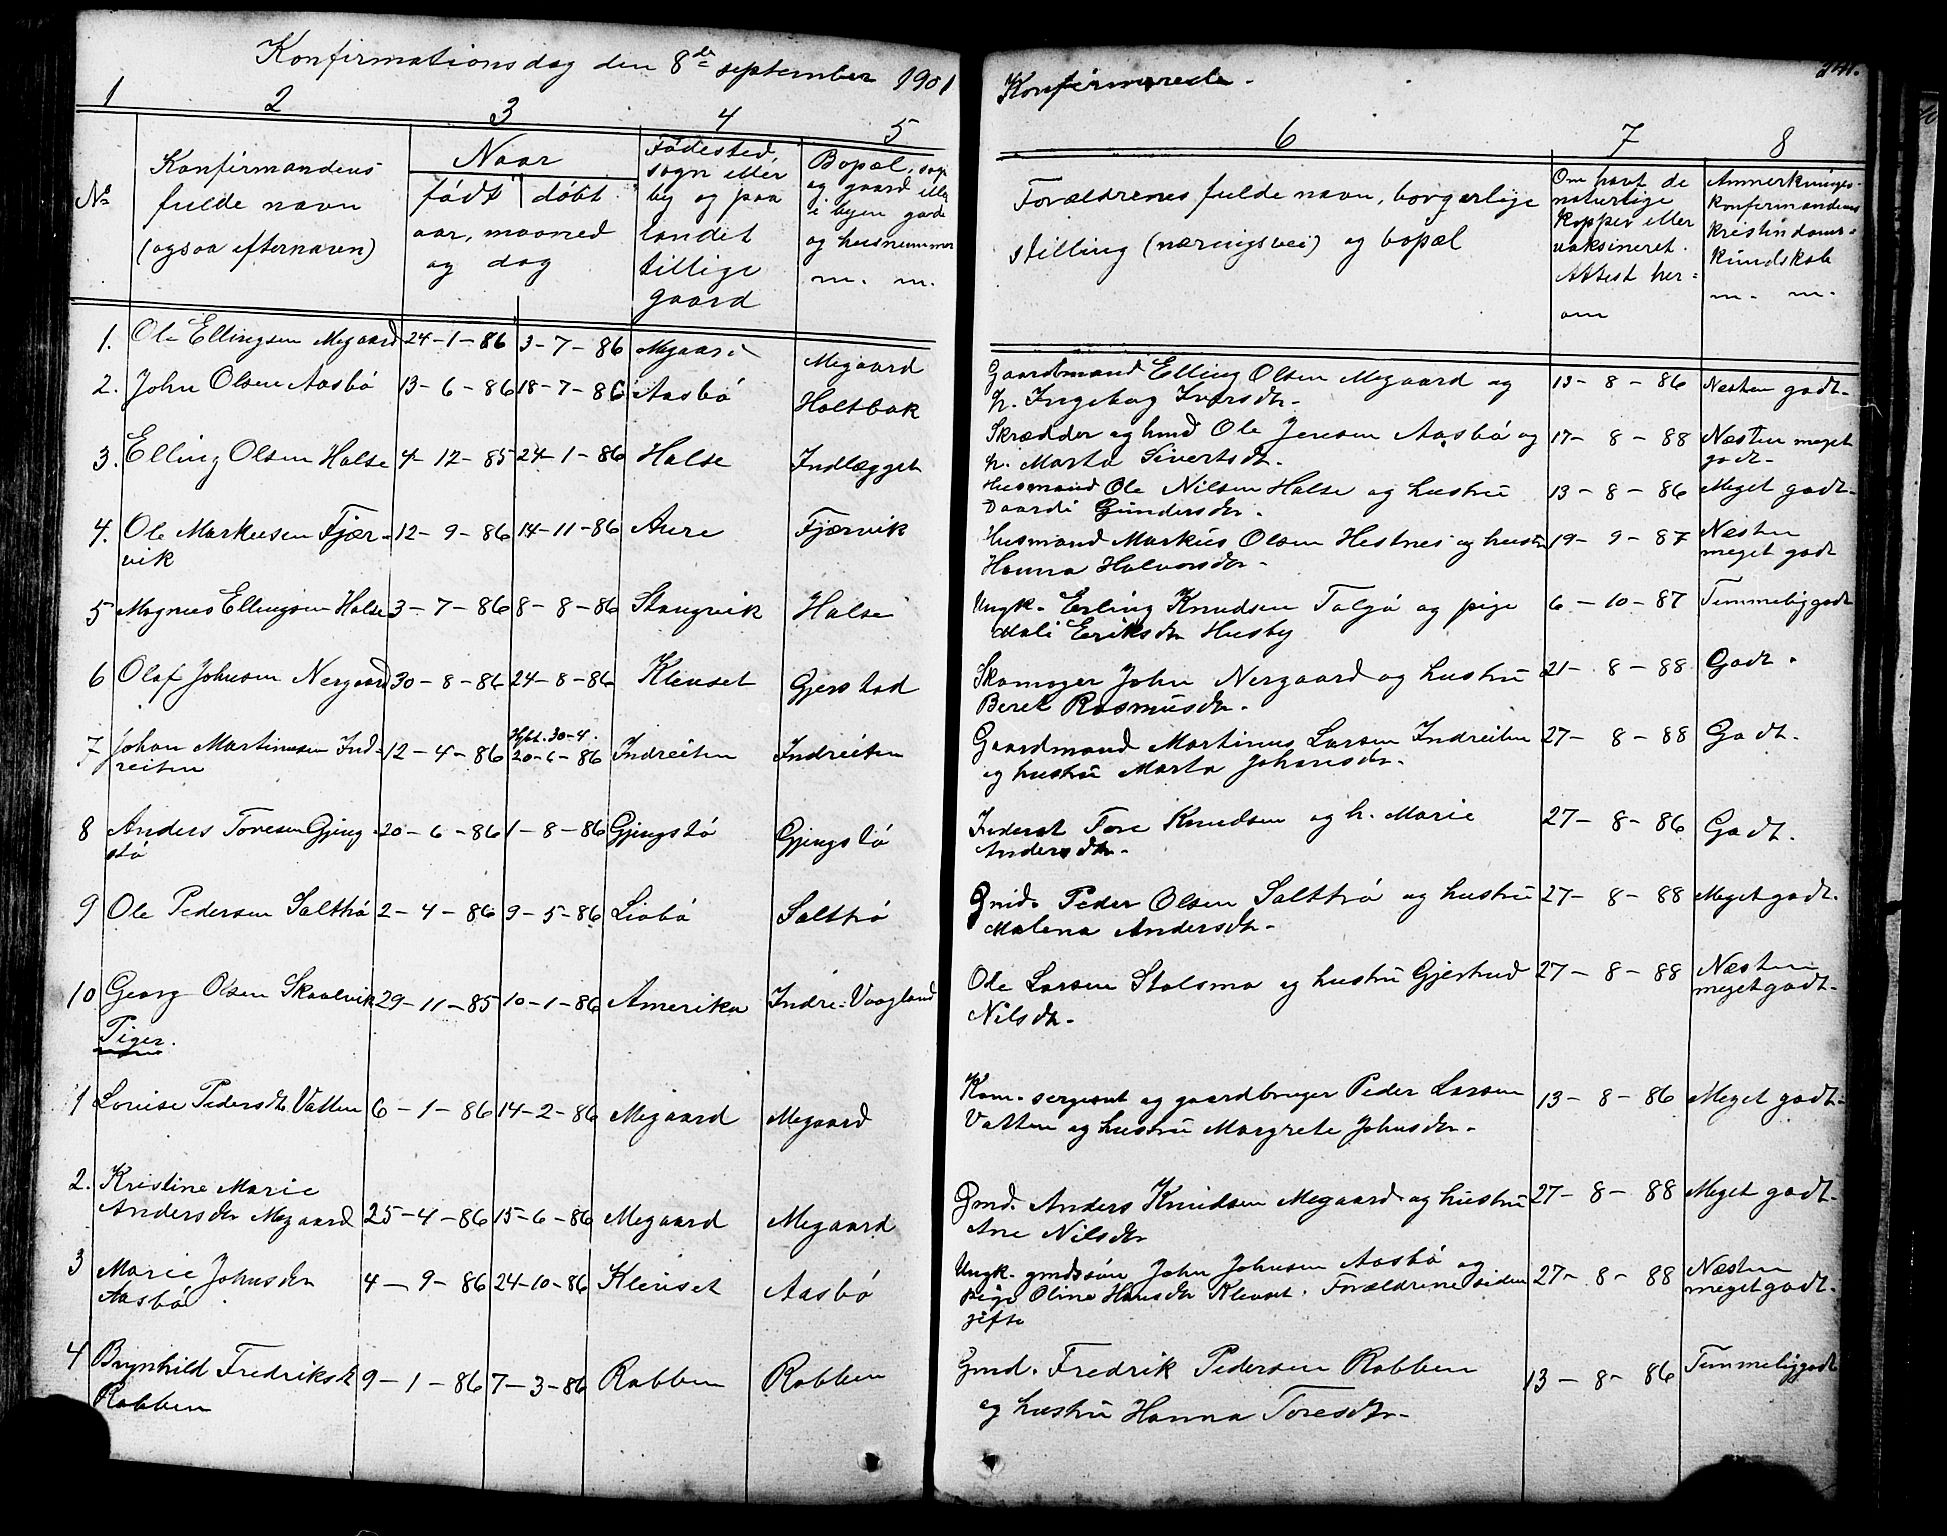 Konfirmationsdag den 8de september 1901
Konfirmerede.
241.
1 2 3 4 5 6 7 8
No
Konfirmandens
fulde navn
(ogsaa efternavn)
Naar
født døbt
aar, maaned
og dag
Fødested,
sogn eller
by og paa
landet
tillige
gaard
Bopæl, sogn
og gaard eller
i byen gade
og husnummer
m. m.
Forældrenes fulde navn, borgerlige
stilling (næringsvei) og bopæl
Om havt de
naturlige
kopper eller
vaksineret.
Attest her-
om
Anmerkninger.
konfirmandens
kristindoms-
kundskab
m. m.
1. Ole Ellingsen Megaard 24-1-86 3-7-86 Megaard Megaard
Gaardmand Elling Olsen Megaard og 13-8-86 Næsten godt.
h. Ingebog Iversdr.
2. John Olsen Aasbö 13-6-86 18-7-86 Aasbö Holtbak
Skrædder og hmd Ole Jensen Aasbö og 17-8-88 Næsten meget
h. Marta Sivertsdr. godt.
3. Elling Olsen Halse 4-12-85 24-1-86 Halse Indlægget
Husmand Ole Nilsen Halse og hustru 13-8-86 Meget godt.
Daardi Gundersdr.
4. Ole Markusen Fjær- 12-9-86 14-11-86 Aure Fjærvik
vik
Husmand Markus Olsen Hestnes og hustru 19-9-87 Næsten
Hanna Halvorsdr. meget godt
5 Magnus Ellingsen Halse 3-7-86 8-8-86 Stangvik Halse
Ungk. Erling Knudsen Talgö og pige 6-10-87 Temmelig godt
Mali Eriksdr Husby
6 Olaf Johnsen Nergaard 30-8-86 24-8-86 Klevset Gjerstad
Skomager John Nergaard og hustru 21-8-88 Godt.
Beret Rasmusdr.
7 Johan Martinusen Ind- 12-4-86 Hjbt. 30-4. 20-6-86 Indreiten Indreiten
reiten
Gaardmand Martinus Larsen Indreiten 27-8-88 Godt.
og hustru Marta Johansdr.
8 Anders Toresen Gjeng- 20-6-86 1-8-86 Gjengstö Gjengstö
stö
Inderst Tore Knudsen og h. Marie 27-8-86 Godt.
Andersdr.
9 Ole Pedersen Salthrö 2-4-86 9-5-86 Liabö Salthrö
Gmd. Peder Olsen Salthrö og hustru 27-8-88 Meget godt.
Malena Andersdr.
10 Georg Olsen Skaalvik 29-11-85 10-1-86 Amerika Indre-Vaagland
Ole Larsen Stolsmo og hustru Gjertrud 27-8-88 Næsten
Nilsdr. meget godt.
Piger.
1 Lovise Pedersdr Vatten 6-1-86 14-2-86 Megaard Megaard
Kom-sergeant og gaardbruger Peder Larsen 13-8-86 Meget godt.
Vatten og hustru Margrete Johnsdr.
2. Kristine Marie
Andersdr Megaard 25-4-86 15-6-86 Megaard Megaard
Gmd. Anders Knudsen Megaard og hustru 27-8-88 Meget godt.
Ane Nilsdr
3 Marie Johnsdr 4-9-86 24-10-86 Klevset Aasbö
Aasbö
Ungk. gmdssön John Johnsen Aasbö og 27-8-88 Næsten
pige Oline Hansdr Klevset. Forældrene siden meget godt.
gifte
4 Brynhild Fredriksdr 9-1-86 7-3-86 Rabben Rabben
Rabben
Gmd. Fredrik Pedersen Rabben 13-8-86 Temmelig godt
og hustru Hanna Toresdr.